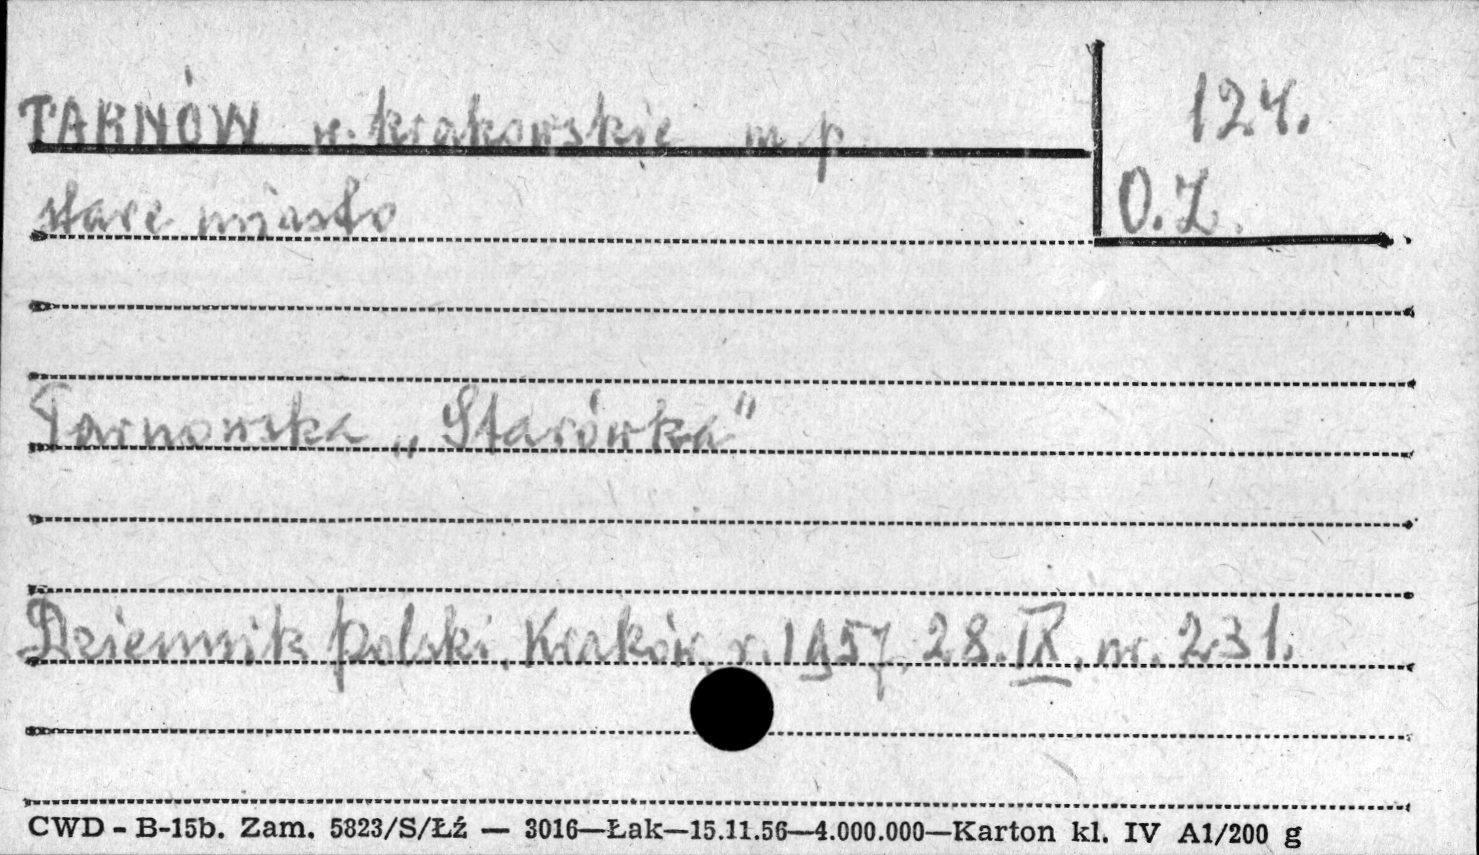 TARNÓW w. krakowskie m. p.
124.
stare miasto
O.Z.
Tarnowska „Starówka"
Dziennik polski. Kraków, r. 1957, 28. IX, nr. 231.
CWD - B-15b. Zam. 5823/S/Łź — 3016—Łak—15.11.56—4.000.000—Karton kl. IV A1/200 g